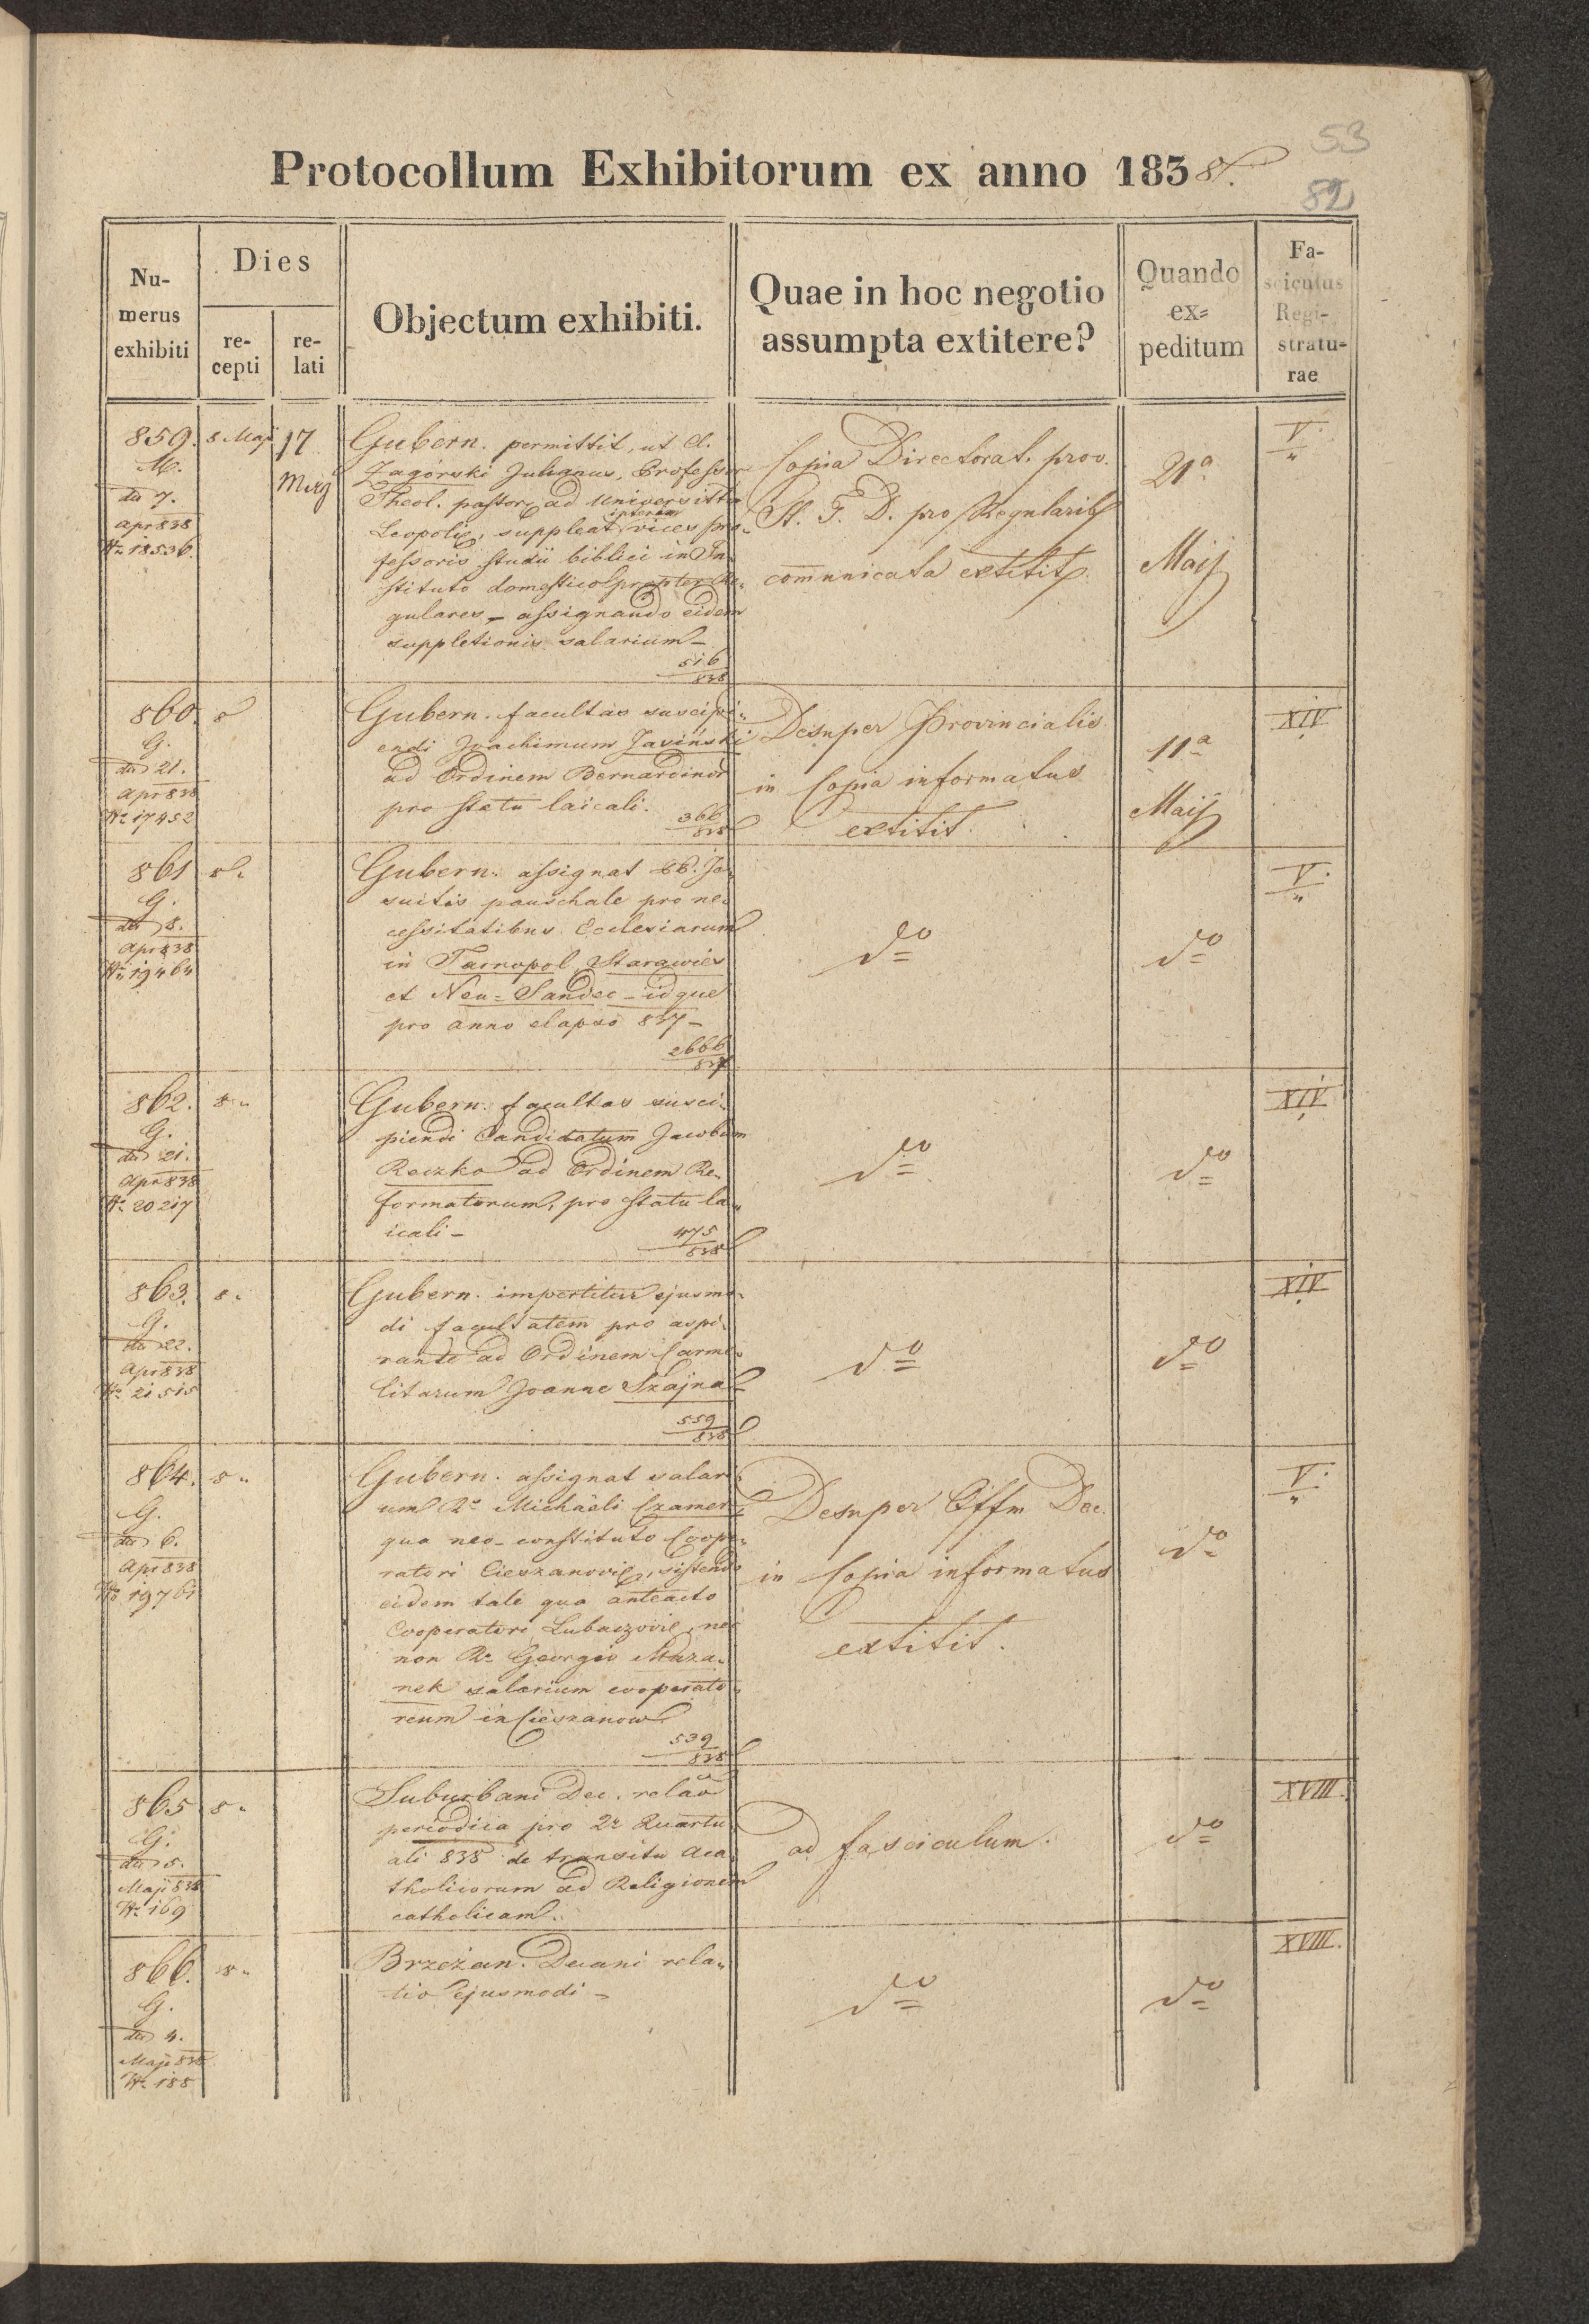 53
Protocollum Exhibitorum ex anno 1838.
82
Nu-
merus
exhibiti
Dies
re-
cepti
re-
lati
Objectum exhibiti.
Quae in hoc negotio
assumpta extitere?
Quando
ex=
peditum
Fa-
sciculus
Regi-
stratu-
rae
859.
M.
dto 7.
Apr 838
No 18536.
8 Maji
17
Maij
Gubern. permittit, ut Cl.
Zagórski Julianus, Professor
Theol. pastor. ad Universitta
interea
Leopolie, suppleat vices pro-
fessoris studii biblici in In-
stituto domestico propter Re-
gulares, – assignando eidem
suppletionis salarium –
516
838
Copia Directorat. prov.
St. F. D. pro Regularib
communicata extitit.
21a
Maij
V.
860.
G.
dto 21.
Apr 838
No 17452
8
Gubern. facultas suscipi-
endi Joachimum Jasiński
ad Ordinem Bernardinor
pro statu laicali.
366
838
Desuper Provincialis
in Copia informatus
extitit.
11a
Maij
XIV
861
G.
dto 8.
Apr 838
No 19464
8.
Gubern. assignat PP. Je-
suitis pauschale pro ne-
cessitatibus Ecclesiarum
in Tarnopol, Starawieś
et Neu=Sandec – idque
pro anno elapso 837 –
2666
837
do
do
V.
862.
G.
dto 21.
Apr 838
No 20217
8.
Gubern. facultas susci-
piendi Candidatum Jacobum
Reczko ad Ordinem Re-
formatorum, pro statu la-
icali –
475
838
do
do
XIV
863.
G.
dto 22.
Apr 838
No 21515
8.
Gubern. impertitur ejusmo-
di facultatem pro aspi-
rante ad Ordinem Carme-
litarum Joanne Szajna
559
838
do
do
XIV
864.
G.
dto 6.
Apr 838
No 19761
8.
Gubern. assignat salari
um Ro Michaëli Czamer
qua neo-constituto Coope-
ratori Cieszanovie, sistendo
eidem tale qua anteacto
Cooperatori Lubaczovie, nec
non Ro Georgio Muza-
nek salarium cooperato-
reum in Cieszanow
539
838
Desuper Offm Dec.
in Copia informatus
extitit.
do
V.
865
G.
dto 5.
Maji 838
No 169
8.
Suburbani Dec. relao
periodica pro 2o Quartu
ali 838 de transitu Aca-
tholicorum ad Religionem
catholicam.
ad fasciculum.
do
XVIII.
866.
G.
dto 4.
Maji 838
No 188
8.
Brzeżan. Decani rela-
tio ejusmodi –
do
do
XVIII.